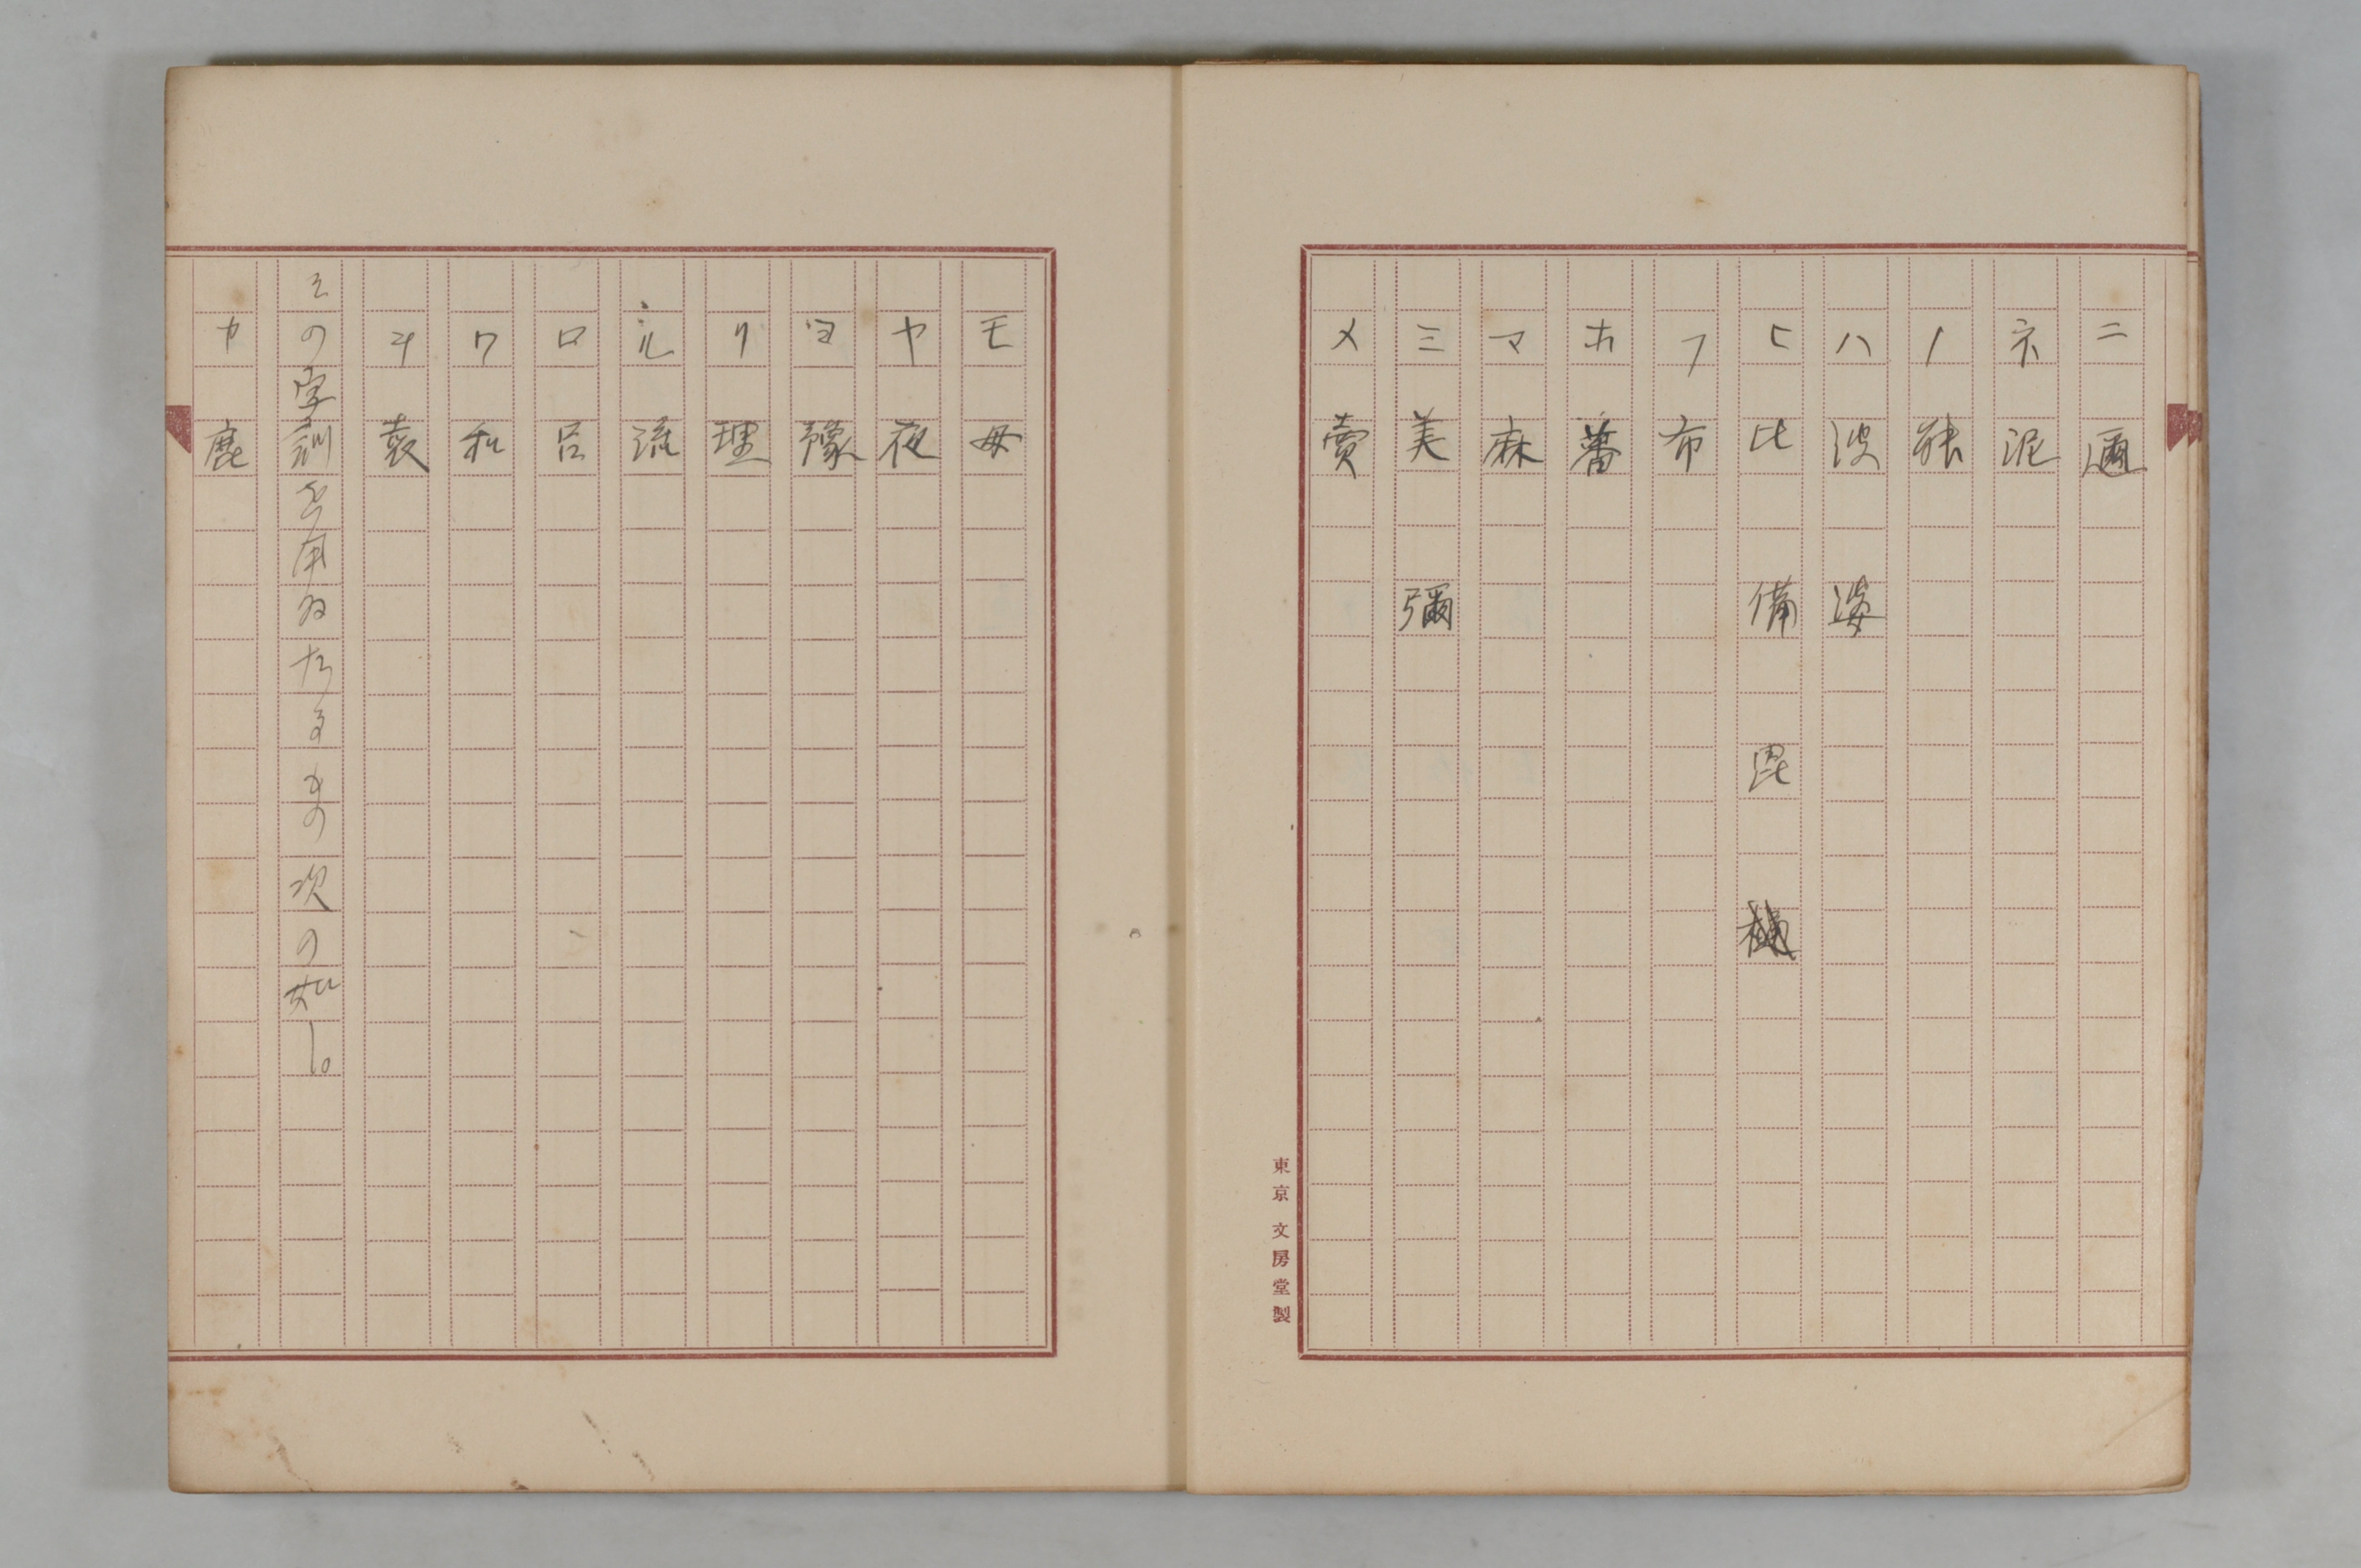 ニ 邇
ネ 泥
ノ 能
ハ 波 婆
ヒ 比 備 毘
フ 布
ホ 蕃
マ 麻
ミ 美 彌
メ 賣
東京 文房堂製
モ 母
ヤ 夜
ヨ 豫
リ 理
ル 流
ロ 呂
ワ 和
ヲ 袁
その字訓を用ゐたるもの次の如し。
カ 鹿